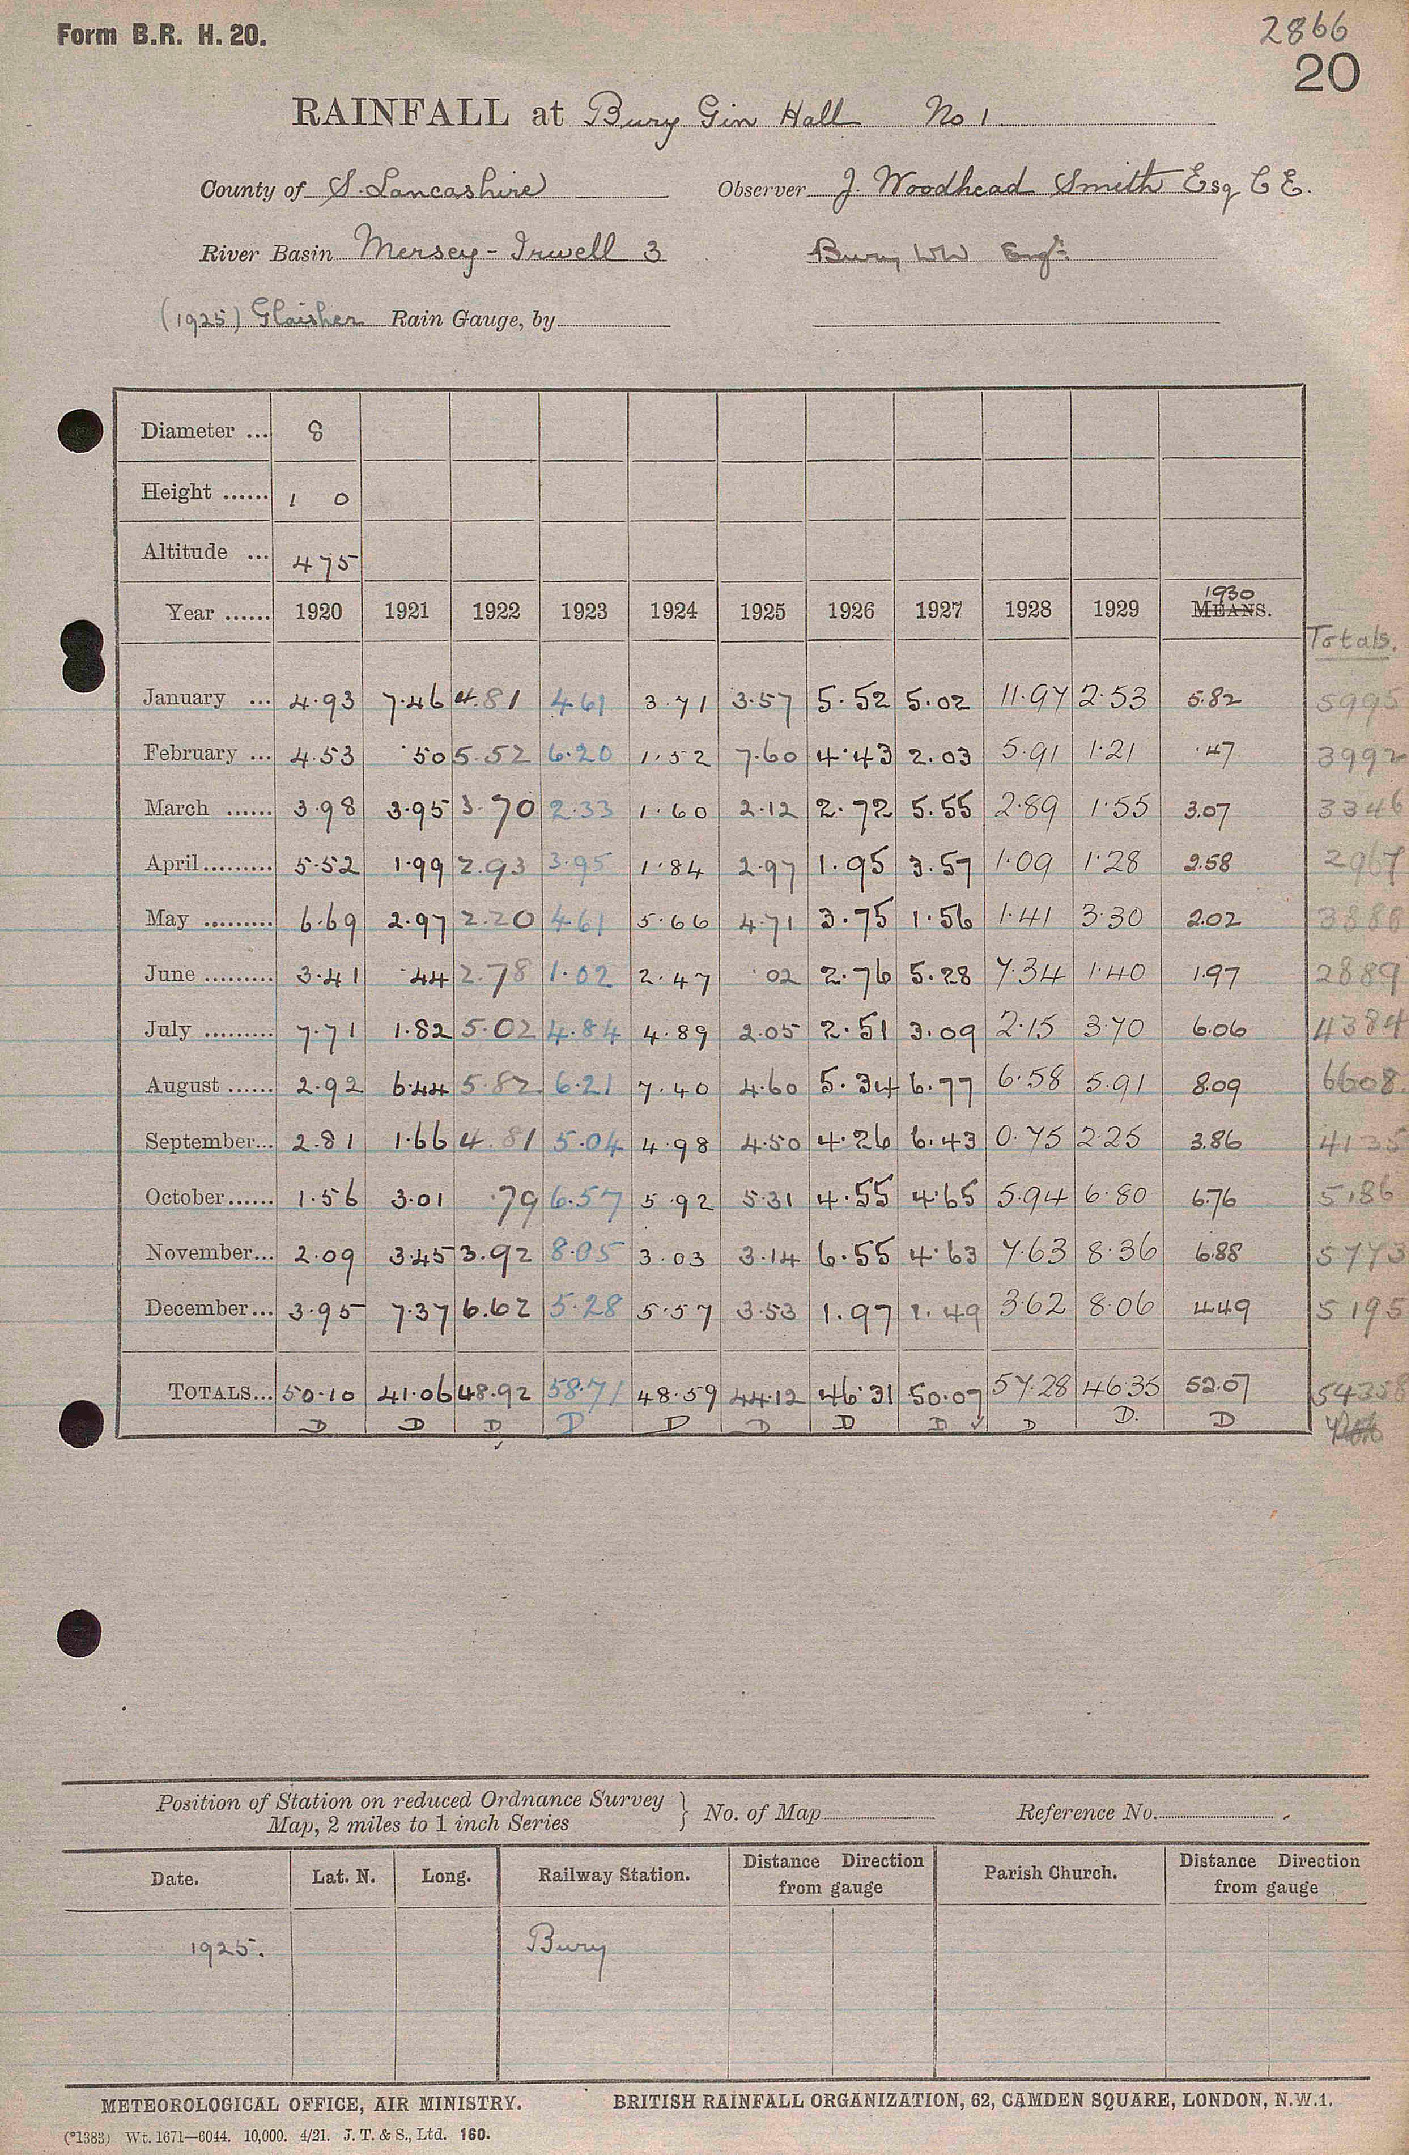 Form B.R. H. 20.
2866
20
RAINFALL at Bury Gin Hall No 1
County of S. Lancashire Observer J. Woodhead Smith Esq C E.
River Basin Mersey - Irwell 3 Bury WW Engr.
(1925) Glaisher Rain Gauge, by
Diameter ... 8
Height ...... 1 0
Altitude ... 475
Year ...... 1920 1921 1922 1923 1924 1925 1926 1927 1928 1929 1930 MEANS.
Totals.
January ... 4.93 7.46 4.81 4.61 3.71 3.57 5.52 5.02 11.97 2.53 5.82 5995
February ... 4.53 .50 5.52 6.20 1.52 7.60 4.43 2.03 5.91 1.21 .47 3992
March ...... 3.98 3.95 3.70 2.33 1.60 2.12 2.72 5.55 2.89 1.55 3.07 3346
April ......... 5.52 1.99 2.93 3.95 1.84 2.97 1.95 3.57 1.09 1.28 2.58 2967
May ......... 6.69 2.97 2.20 4.61 5.66 4.71 3.75 1.56 1.41 3.30 2.02 3888
June ......... 3.41 .44 2.78 1.02 2.47 .02 2.76 5.28 7.34 1.40 1.97 2889
July ......... 7.71 1.82 5.02 4.84 4.89 2.05 2.51 3.09 2.15 3.70 6.06 4384
August ...... 2.92 6.44 5.82 6.21 7.40 4.60 5.34 6.77 6.58 5.91 8.09 6608
September ... 2.81 1.66 4.81 5.04 4.98 4.50 4.26 6.43 0.75 2.25 3.86 4135
October ...... 1.56 3.01 .79 6.57 5.92 5.31 4.55 4.65 5.94 6.80 6.76 5186
November ... 2.09 3.45 3.92 8.05 3.03 3.14 6.55 4.63 7.63 8.36 6.88 5773
December ... 3.95 7.37 6.62 5.28 5.57 3.53 1.97 1.49 3.62 8.06 4.49 5195
TOTALS... 50.10 41.06 48.92 58.71 48.59 44.12 46.31 50.07 57.28 46.35 52.07 54358
D D D D D D D D ✓ D D. D
Position of Station on reduced Ordnance Survey
Map, 2 miles to 1 inch Series } No. of Map Reference No.
Date. Lat. N. Long. Railway Station. Distance Direction from gauge Parish Church. Distance Direction from gauge
1925. Bury
METEOROLOGICAL OFFICE, AIR MINISTRY. BRITISH RAINFALL ORGANIZATION, 62, CAMDEN SQUARE, LONDON, N.W.1.
(*1383) Wt. 1671—6044. 10,000. 4/21. J. T. & S., Ltd. 160.